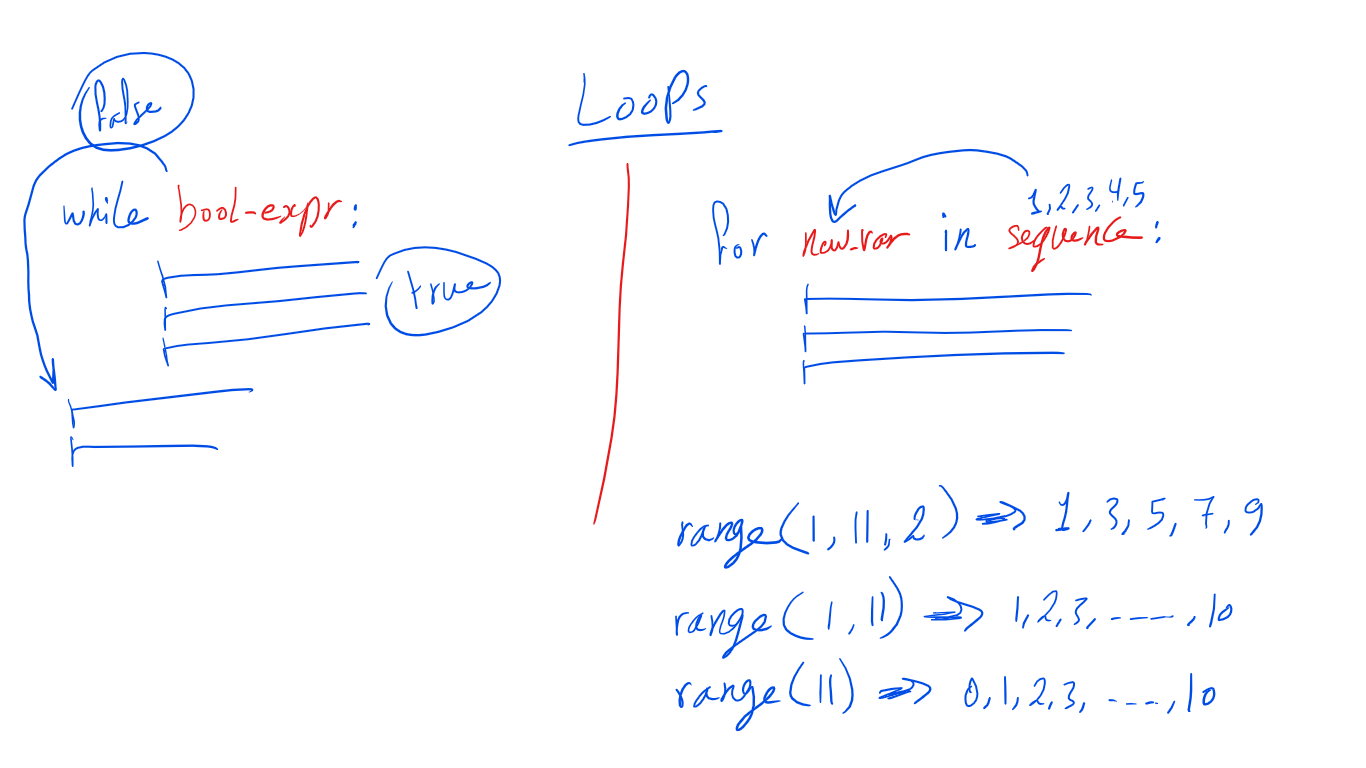 Loops
false
while bool-expr:
true
1,2,3,4,5
for new_var in sequence:
range(1, 11, 2) => 1, 3, 5, 7, 9
range(1, 11) => 1, 2, 3, -----, 10
range(11) => 0, 1, 2, 3, ----, 10